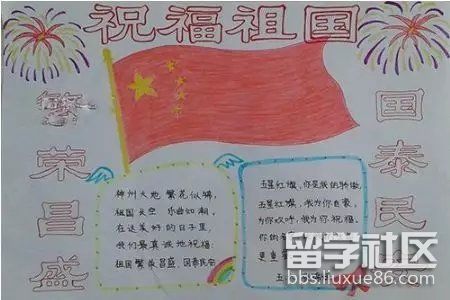 祝福祖国
繁荣昌盛
国泰民
神州大地 繁花似锦,
祖国长空 乐曲如潮,
在这美好的日子里,
我们最真诚地祝福:
祖国繁荣昌盛,国泰民安
五星红旗,你是我的骄傲,
五星红旗,我为你自豪,
为你欢呼,我为你祝福,
你的
更重
五
留学社区
bbs.liuxue86.com